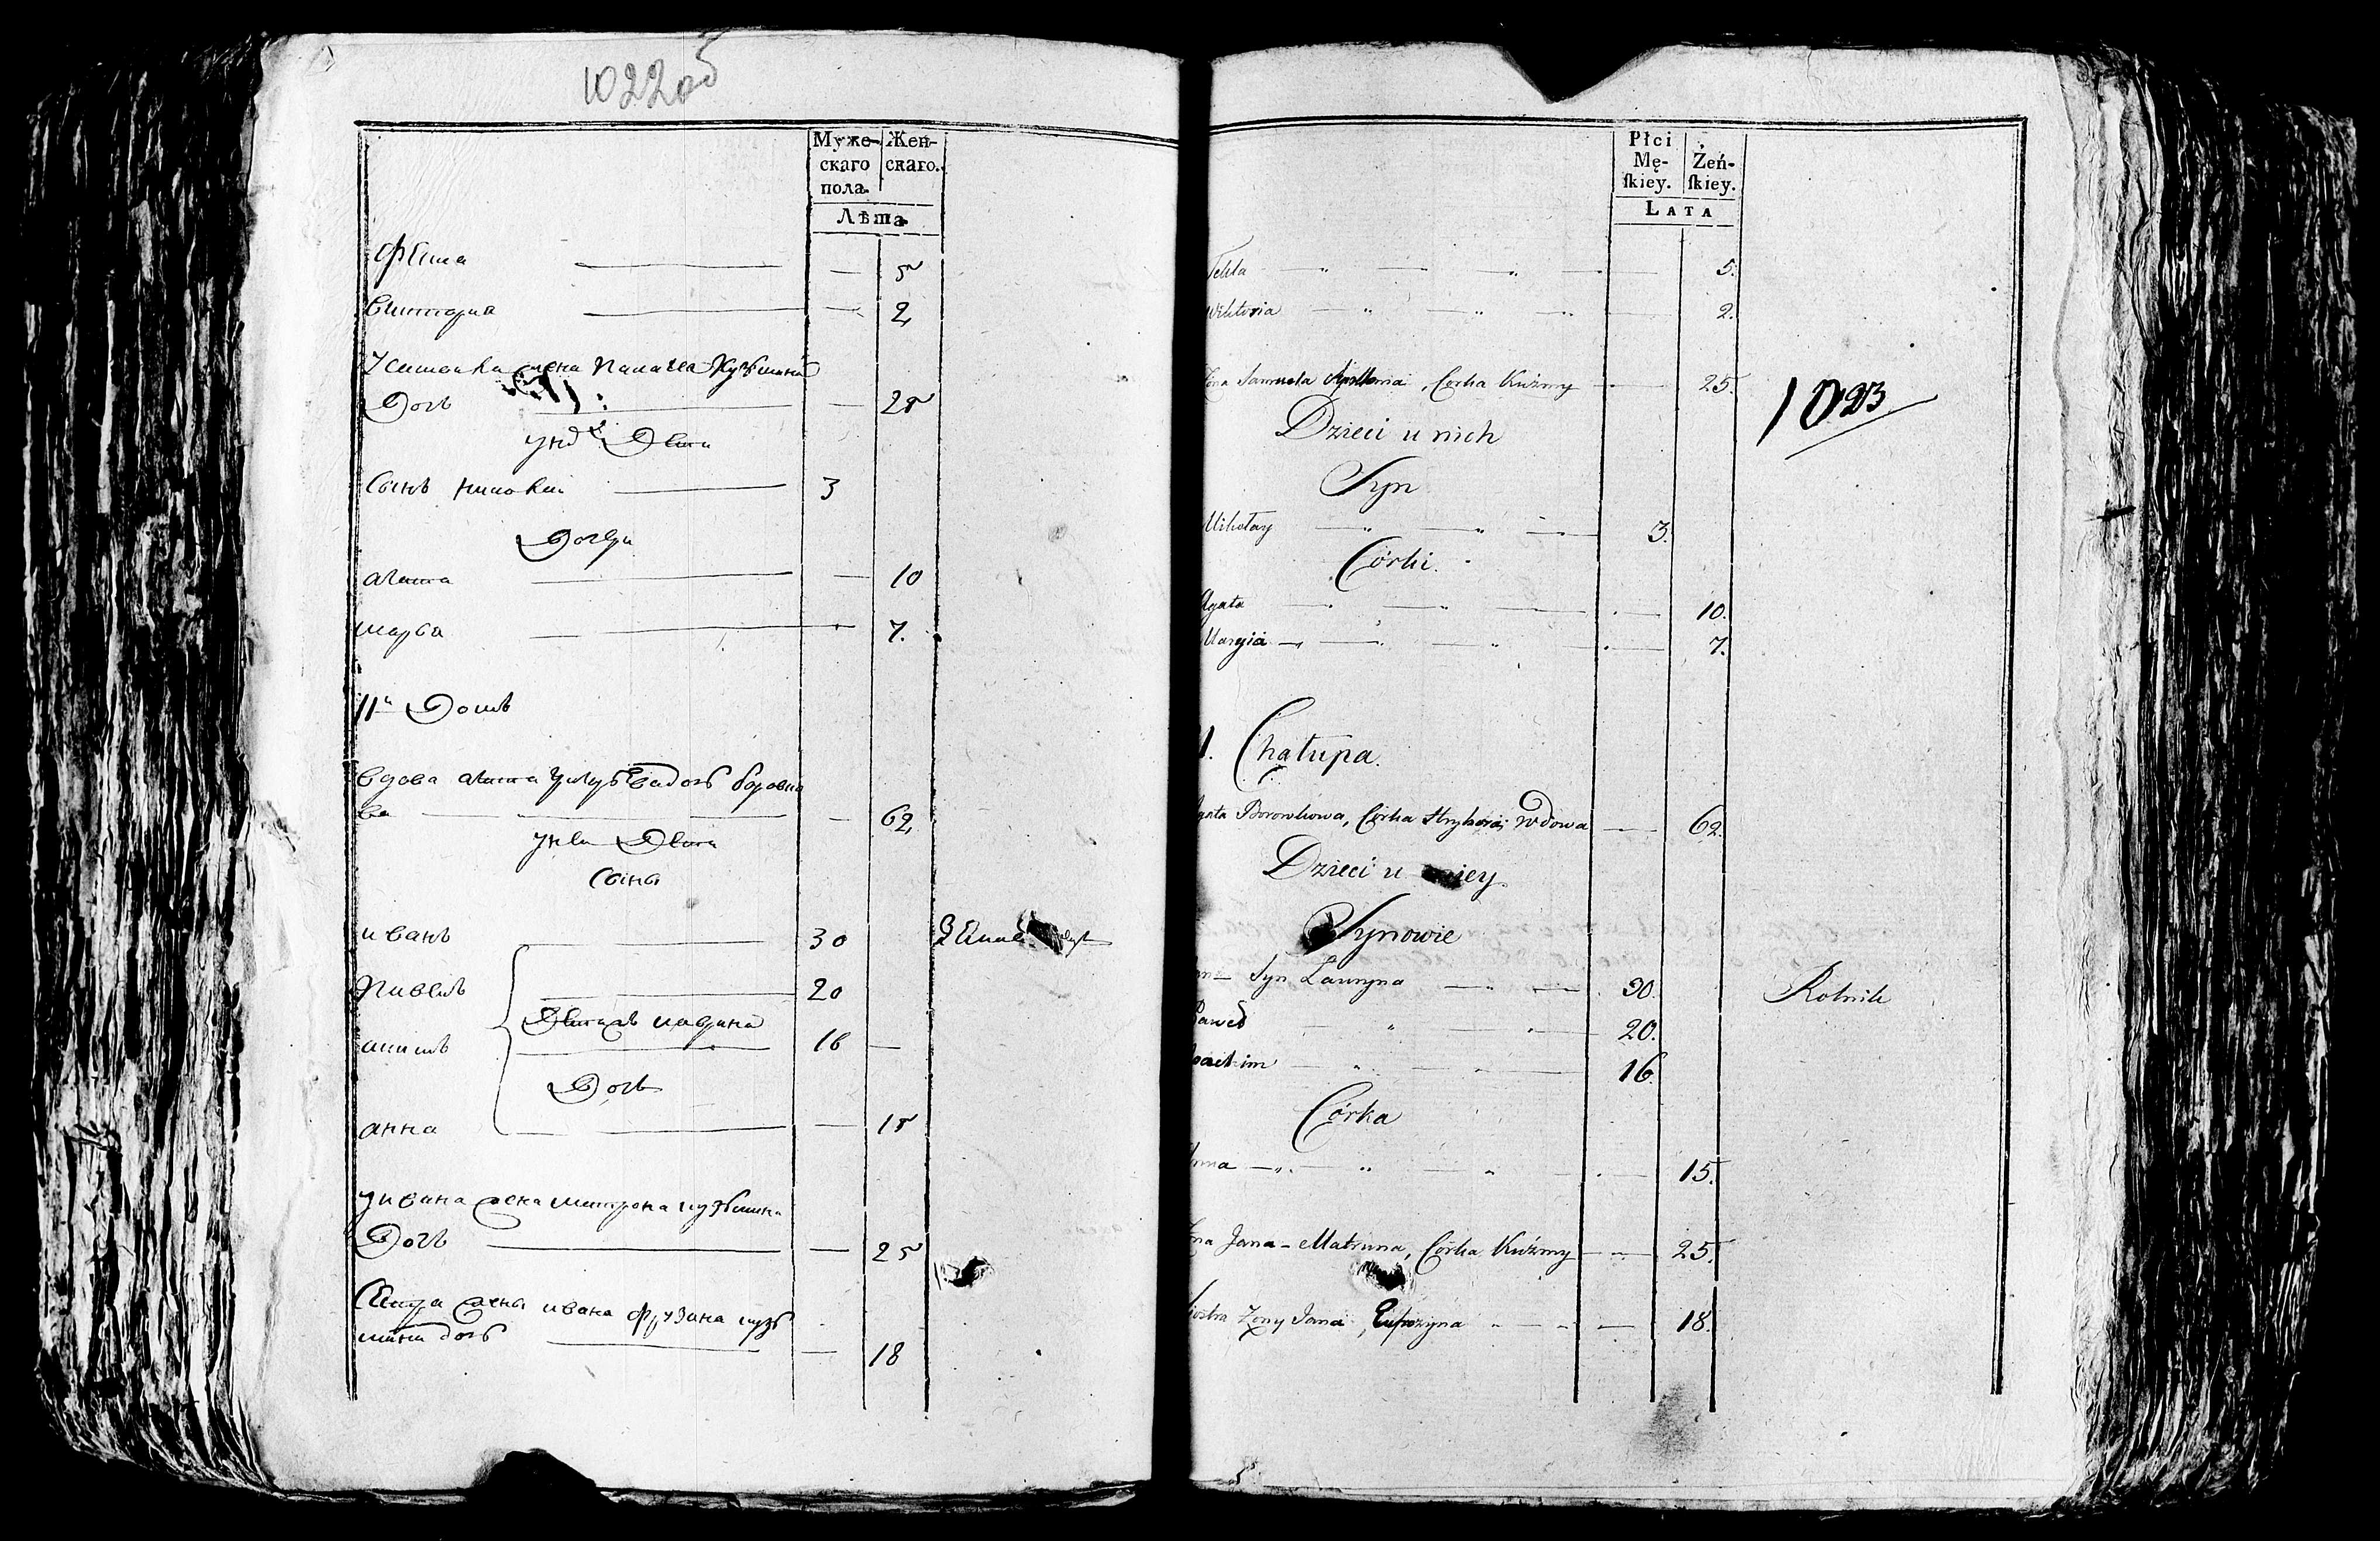 1022об
Муже-
скаго
пола.
Жен-
скаго.
Лѣта
Фекла — 5
Викториа — 2
жена
Дочь — 25
у нихъ Дети
Сынъ Николай — 3
Дочери
агата — 10
марья — 7.
11й Домъ
Вдова агата дочь Боровко
ва — 62
у ней Дети
Сыны
иванъ 30
Павелъ 20
Дети лаврина
акимъ 16
Дочь
анна — 15
у ивана жена матрона кузьмина
Дочь — 25
Сестра жены ивана фрузына кузь
мина дочь — 18
Płci
Mę-
skiey.
Żeń-
skiey.
LATA
Tekla — 5.
Wiktoria — 2.
Żona Samuela Apollonia, Corka Kuźmy — 25.
1023
Dzieci u nich
Syn
Mikołay — 3.
Córki.
Agata — 10.
Maryia — 7.
11. Chałupa.
Agata Borowkowa, Córka Hryhora, Wdowa — 62.
Dzieci u niey
Synowie
Jan — Syn Ławryna — 30. Rolnik
Paweł — 20.
Joachim — 16.
Córka
Anna — 15.
Żona Jana – Matruna, Córka Kuźmy — 25.
Siostra Żony Jana, Eufrozyna — 18.